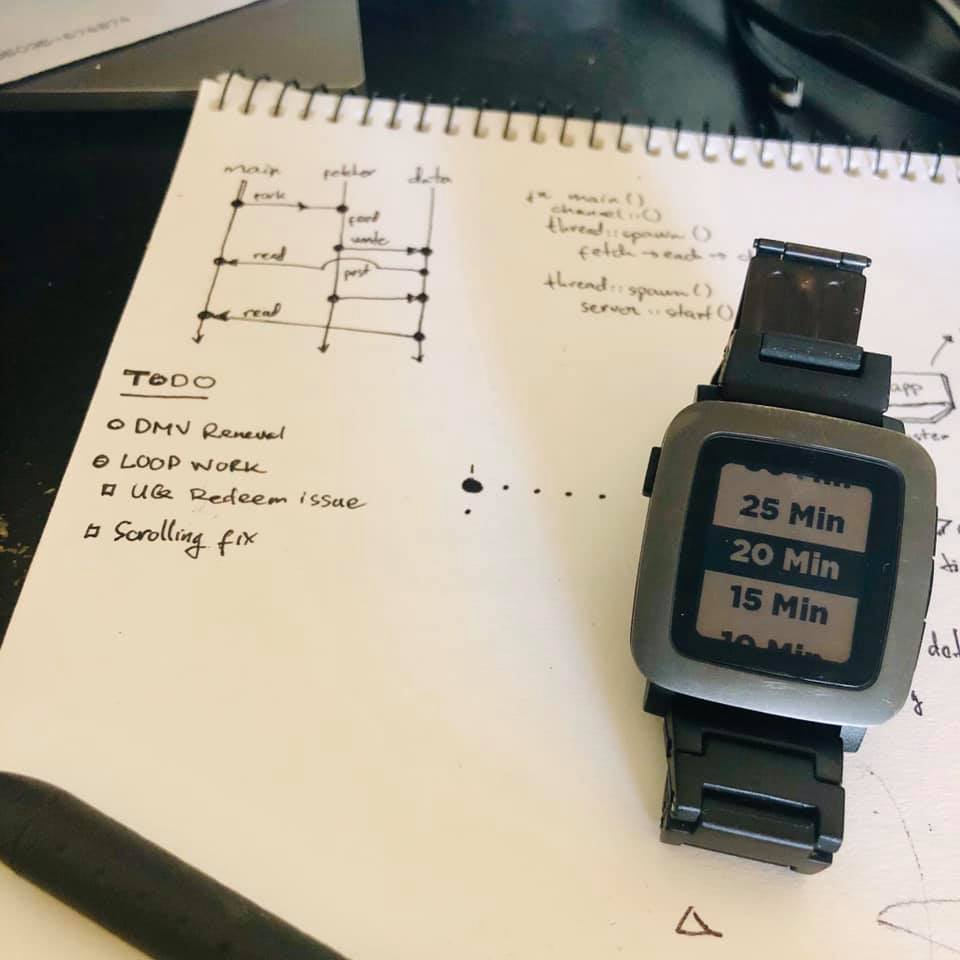 main fetcher data
fork
feed
write
read
post
read
fn main()
channel::()
thread::spawn()
fetch → each →
thread::spawn()
server::start()
app
TODO
DMV Renewal
LOOP WORK
UG2 Redeem issue
Scrolling fix
25 Min
20 Min
15 Min
10 Min